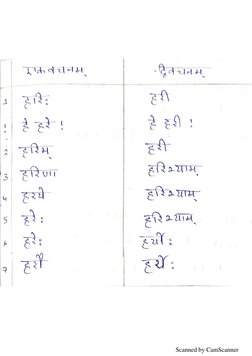 एकवचनम् द्विवचनम्
1 हरिः हरी
! हे हरे ! हे हरी !
2 हरिम् हरी
3 हरिणा हरिभ्याम्
4 हरये हरिभ्याम्
5 हरेः हरिभ्याम्
6 हरेः हर्योः
7 हरौ हर्योः
Scanned by CamScanner